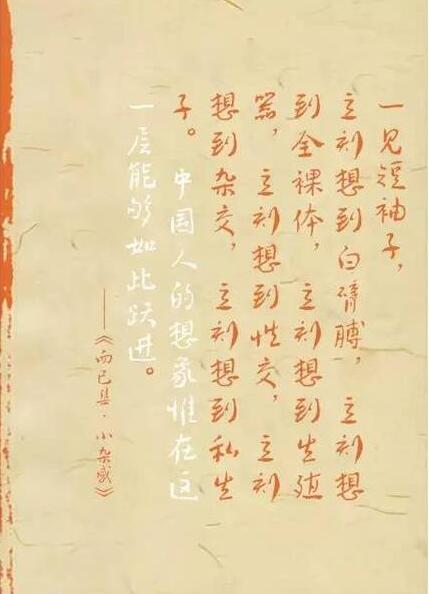 一见短袖子，
立刻想到白臂膊，立刻想
到全裸体，立刻想到生殖
器，立刻想到性交，立刻
想到杂交，立刻想到私生
子。中国人的想象惟在这
一层能够如此跃进。
——《而已集·小杂感》